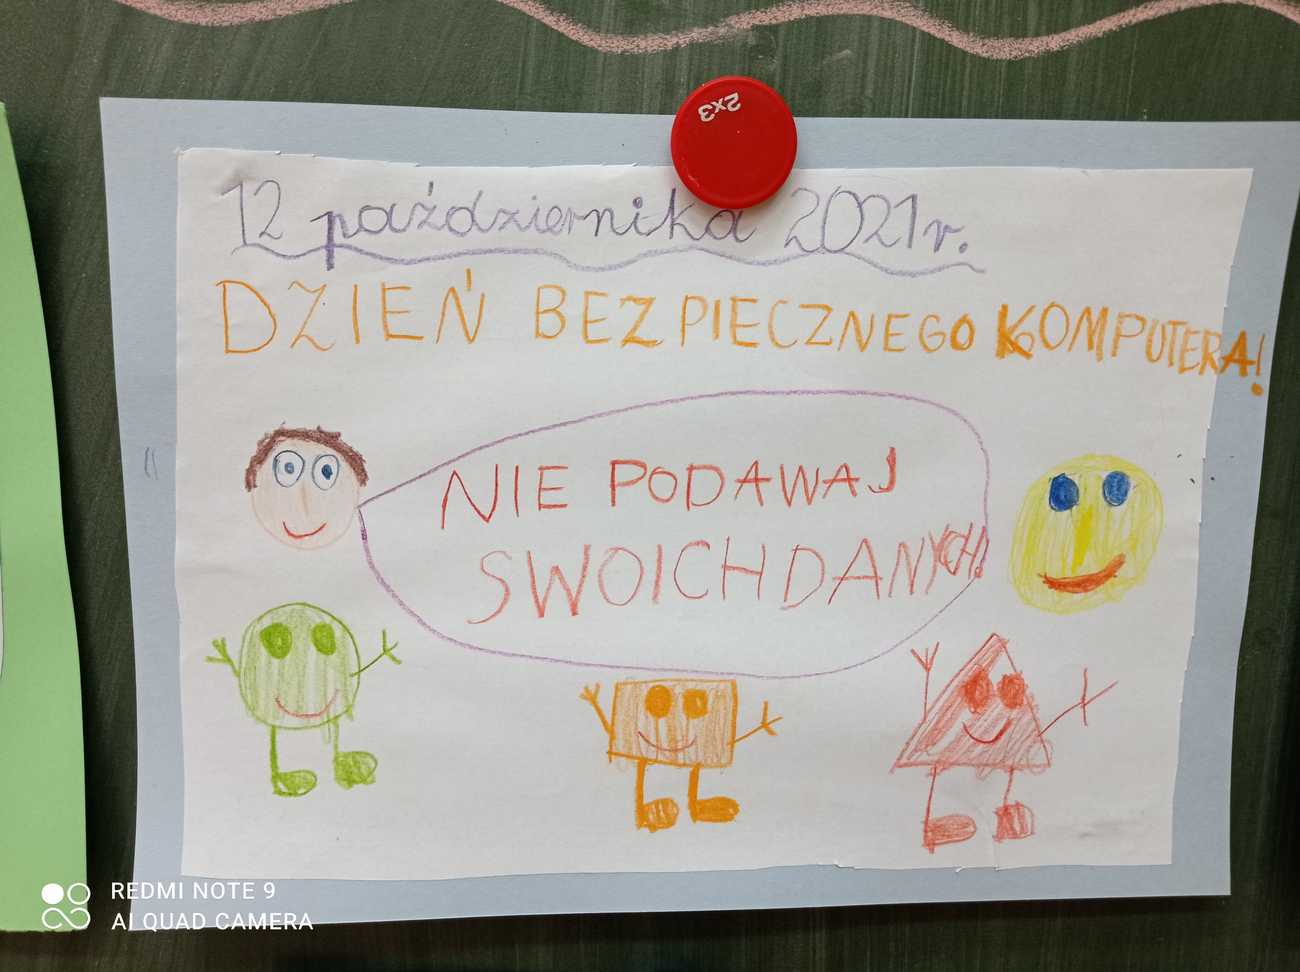 2x3
12 października 2021 r.
DZIEŃ BEZPIECZNEGO KOMPUTERA!
NIE PODAWAJ
SWOICH DANYCH!
REDMI NOTE 9
AI QUAD CAMERA